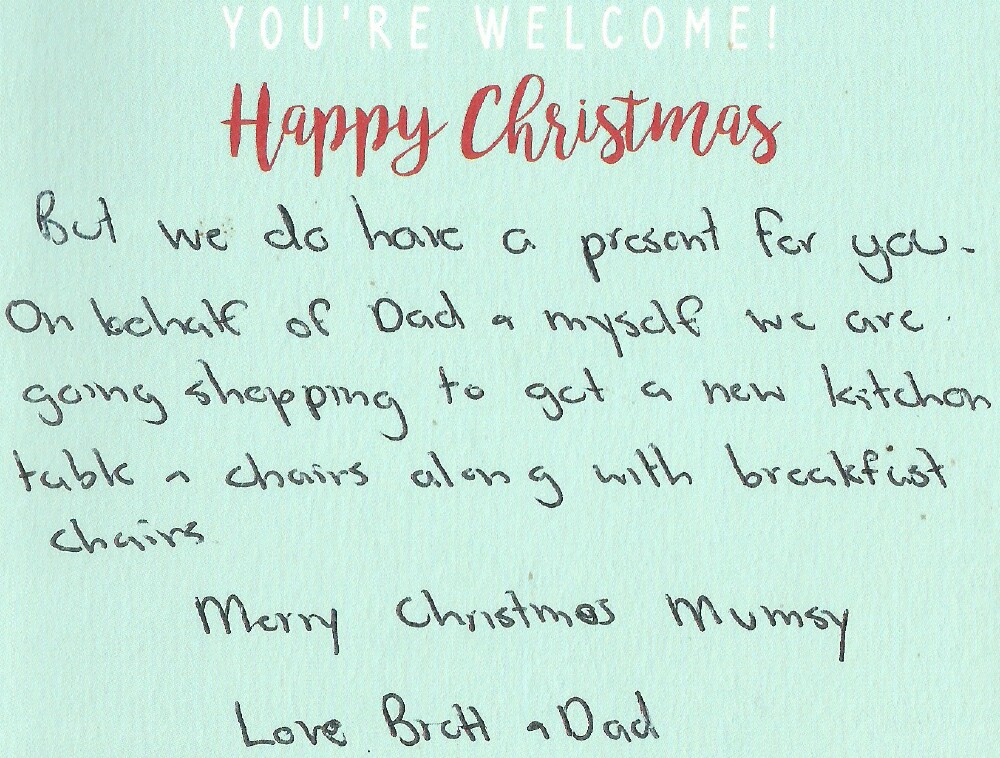 YOU'RE WELCOME!
Happy Christmas
But we do have a present for you.
On behalf of Dad & myself we are
going shopping to get a new kitchen
table & chairs along with breakfast
chairs
Merry Christmas Mumsy
Love Brett & Dad